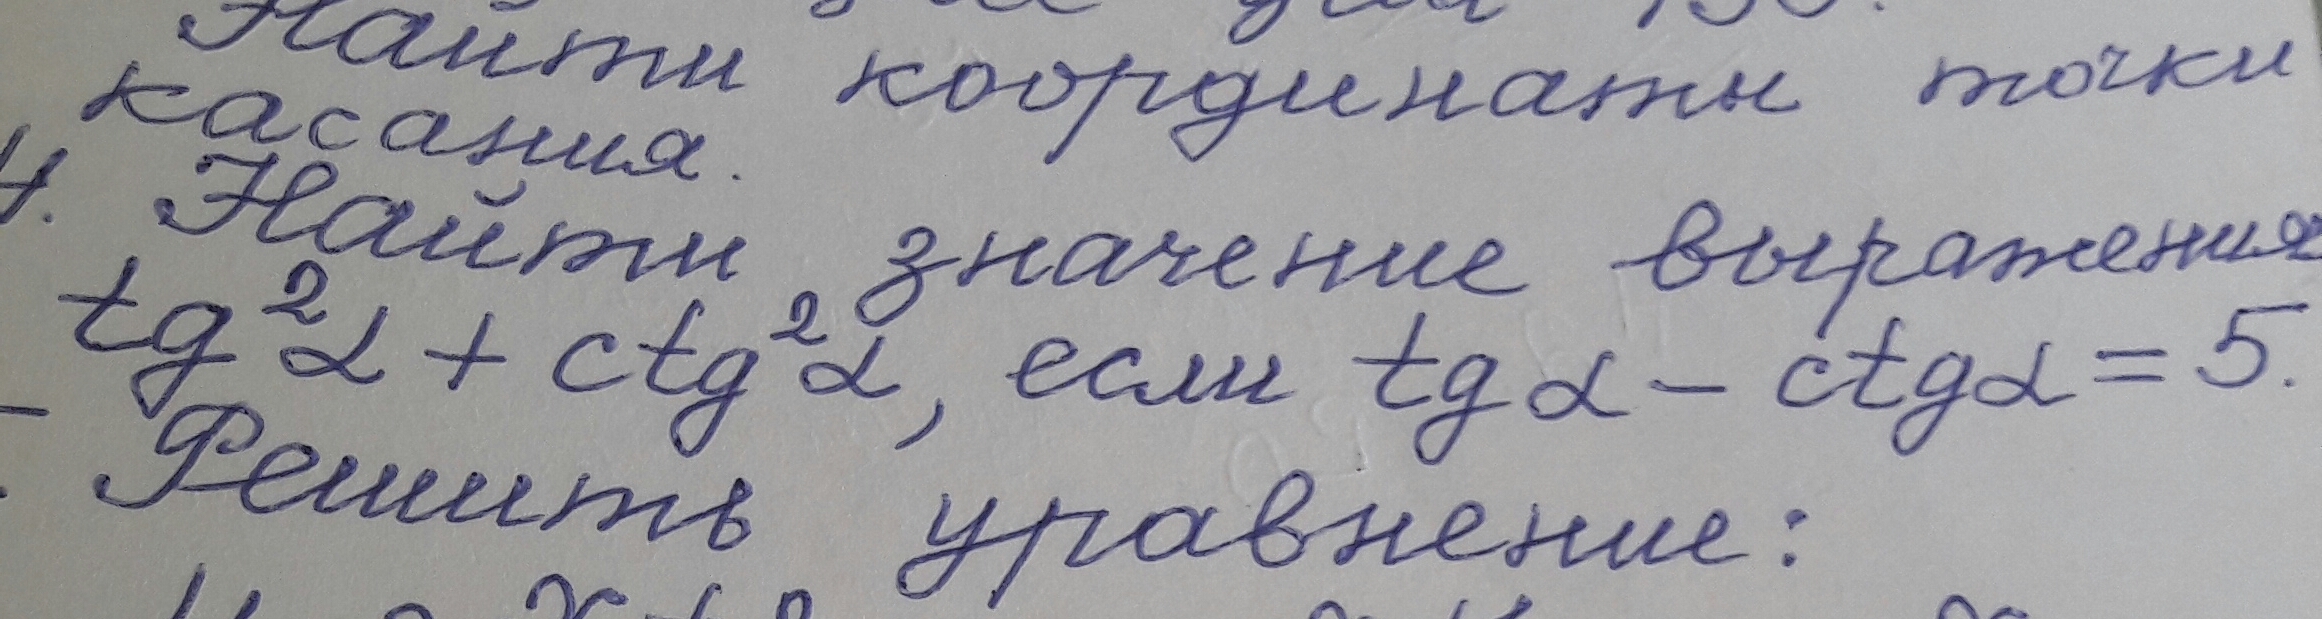 Найти координаты точки
касания.
4. Найти значение выражения
tg²α + ctg²α, если tg α - ctgα = 5.
Решить уравнение: